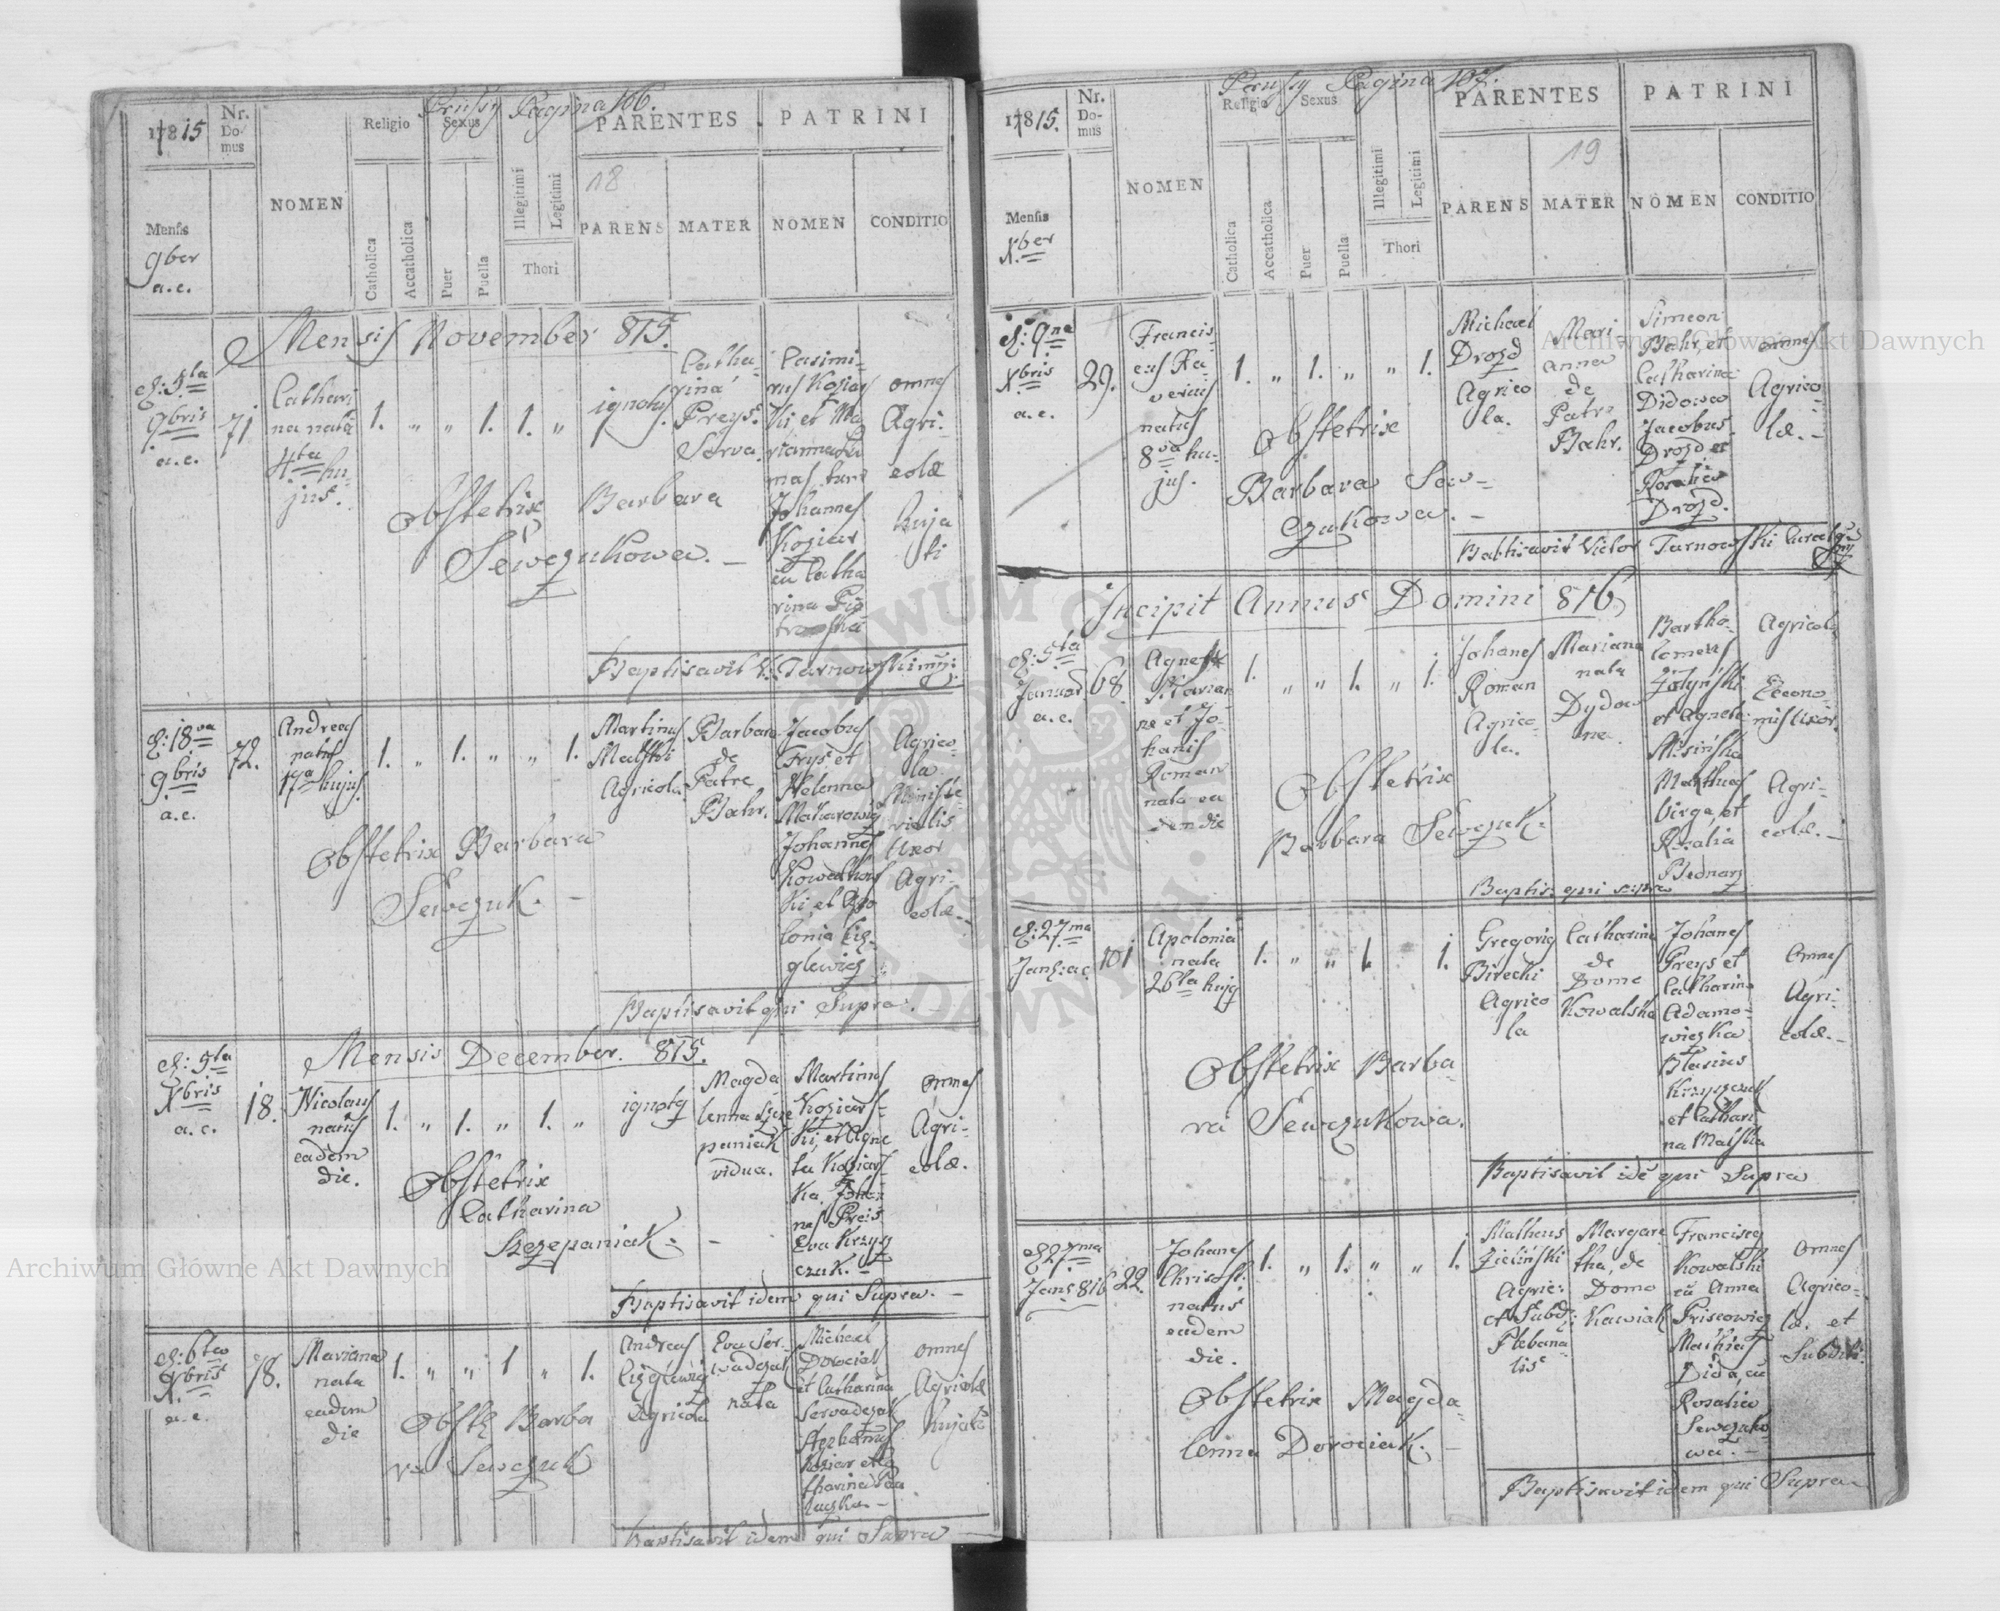 Prusy Pagina 166.
1815
Nr. Domus
NOMEN
Religio
Sexus
Illegitimi
Legitimi
PARENTES
PATRINI
18
Mensis
9ber
a.c.
Catholica
Accatholica
Puer
Puella
Thori
PARENS
MATER
NOMEN
CONDITIO
Mensis November 815.
d: 5ta
9bris
a.c.
71
Cathari
na nata
4ta hu
jus.
1. „ „ 1. 1. „
ignotus.
Catha-
rina
Preys.
Serva.
Casimi-
rus Koziar
ki et Ma
rianna
tum
Johannes
Koziar
cu Catha
rina
omnes
Agri-
colæ
huja
ti
Obstetrix Barbara
Sewczukowa. –
Baptisavit V. Tarnowski mp.
d: 18va
9bris
a.c.
72.
Andreas
natus
17a hujus.
1. „ 1. „ „ 1.
Martinus
Malski
Agricola.
Barbara
de
Patre
Bahr.
Jacobus
Frys et
Helenna
Makarowicz
Johannes
Kowalkows
ki, et Apo
lonia Ciz-
glewicz
Agrico-
la
Ministe-
rialis
Uxor
Agri-
colæ. –
Obstetrix Barbara
Sewczuk. –
Baptisavit qui Supra. –
Mensis December. 815.
d: 5ta
Xbris
a.c.
18.
Nicolaus
natus
eadem
die.
1. „ 1. „ 1. „
ignotus
Magda
lenna Szcze
paniak
vidua.
Martinus
Koziars-
ki, et Agne
ta Koziars
ka, Johan
nes Preis
Eva Krzys
czuk.
omnes
Agri-
colæ.
Obstetrix
Catharina
Szczepaniak. –
Baptisavit idem qui Supra. –
d: 6ta
Xbris
a.c.
78.
Mariana
nata
eadem
die
1. „ „ 1 „ 1.
Andreas
Cizglewicz
Agricola
Eva Ser-
wadczak
nata
Michael
Dorociak
et Catharina
Serwadczak
Stephanus
Koziar et Ca
tharina
omnes
Agricolæ
hujati
Obstx Barba
ra Sewczuk
Baptisavit idem qui Supra –
Prusy Pagina 167.
1815.
Nr. Domus
NOMEN
Religio
Sexus
Illegitimi
Legitimi
PARENTES
PATRINI
19
Mensis
Xber
Catholica
Accatholica
Puer
Puella
Thori
PARENS
MATER
NOMEN
CONDITIO
d: 9na
Xbris
a.c.
29.
Francis-
cus Xa-
verius
natus
8va hu-
jus.
1. „ 1. „ „ 1.
Michael
Drozd
Agrico
la.
Mari
anna
de
Patre
Bahr.
Simeon
Bahr, et
Catharina
Didowa
Jacobus
Drozd et
Rosalia
Drozd.
omnes
Agrico-
læ. –
Obstetrix
Barbara Sew-
czukowa. –
Babtisavit Victor Tarnowski Curatus
Incipit Annus Domini 816.
d: 5ta
Januar
a.c.
68.
Agnes
Marian
ne et Jo-
hanis
Roman
nata ea
dem die
1. „ „ 1. „ 1.
Johanes
Roman
Agrico-
la.
Mariana
nata
Dydow
na
Bartho-
lomeus
et Agnes
Matheus
Birga, et
Rosalia
Bednarz
Agricola
Econo-
mis Uxor.
Agri-
colæ. –
Obstetrix
Barbara Sewczuk.
Baptis. qui supra
d: 27ma
Jan: ac.
101
Apolonia
nata
26ta hujus
1. „ „ 1. 1.
Gregorius
Birecki
Agrico
la
Catharina
de
Domo
Kowalska
Johanes
Preys et
Catharina
Adamo-
wiczka
Blasius
Krzyszczuk
et Cathari-
na Malska
omnes
Agri-
colæ. –
Obstetrix Barba-
ra Sewczukowa.
Baptisavit idē qui Supra
d 27ma
Jan: 816
22.
Johanes
Christost:
natus
eadem
die.
1. „ 1. „ „ 1.
Matheus
Zieliński
Agric:
et Subd:
Plebana-
lis
Margare
tha, de
Domo
Kawiak
Franciscus
Kowalski
cū Anna
Friscowicz
Mathias
Dida, cū
Rosalia
Sewczuko-
wa. –
omnes
Agrico-
læ. et
Subditi
Obstetrix Magda-
lenna Dorociak. –
Baptisavit idem qui Supra
Archiwum Główne Akt Dawnych
Archiwum Główne Akt Dawnych